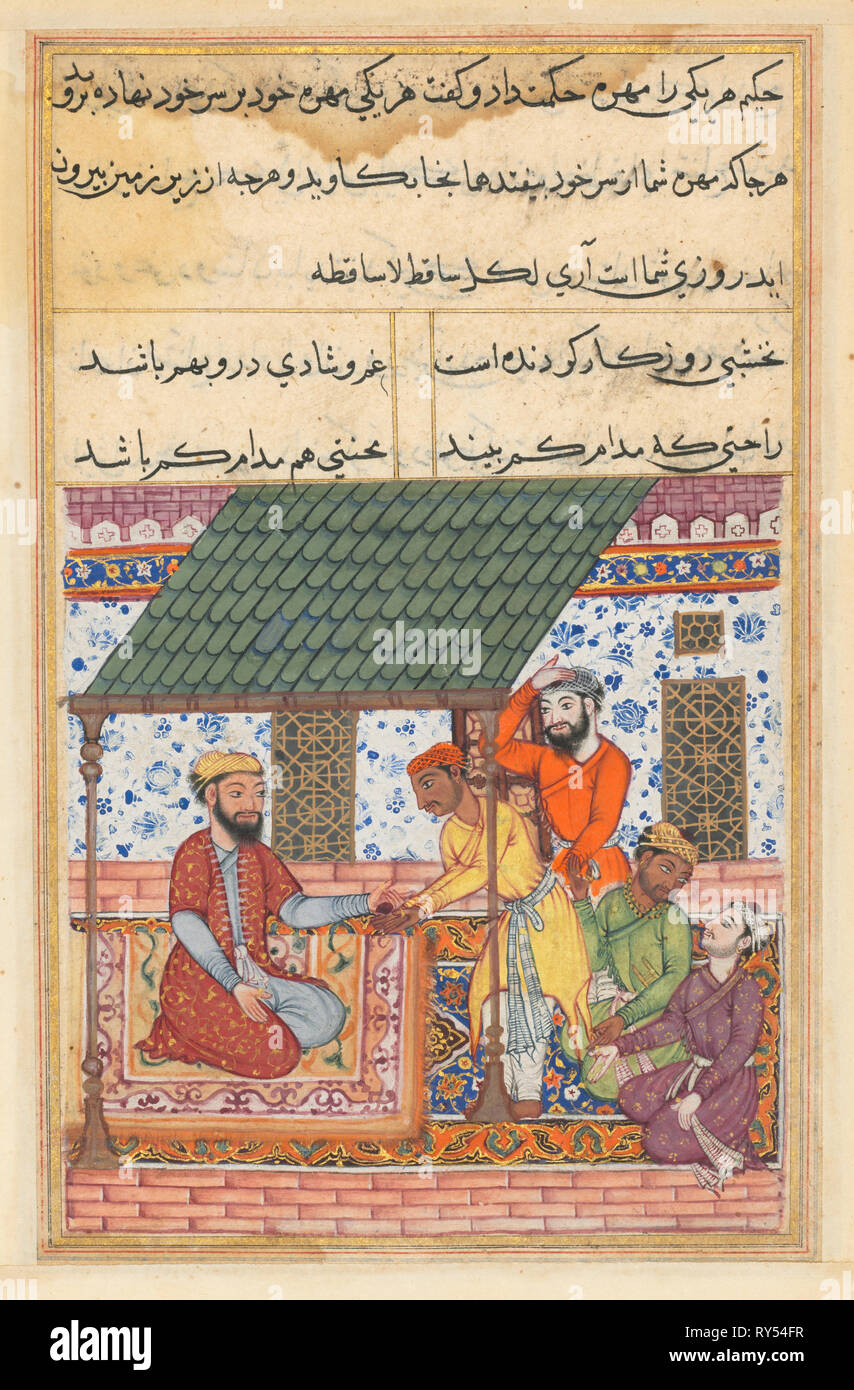 حکیم هر یکی را مهره حکمت داد و گفت هر یکی مهره خود بر سر خود نهاده بروید
هرجا که مهره شما از سر خود بیفتد ها بخا بکاوید و هرجه از زیر زمین بیرون
اید روزی شما است آری لکل ساقط لاساقطه
نخشبی روزکار کردنده است غم و شادی درو بهم باشد
راحتی که مدام کم بیند محنتی هم مدام کم باشد
alamy
alamy
Image ID: RY54FR
www.alamy.com